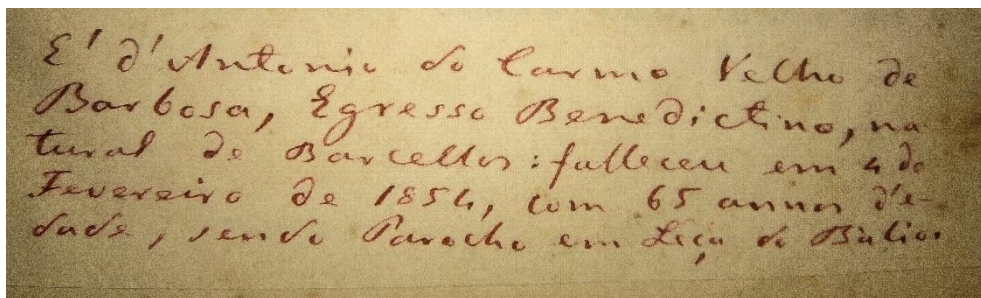 E' d'Antonio do Carmo Velho de
Barbosa, Egresso Benedictino, na
tural de Barcellos: falleceu em 4 de
Fevereiro de 1854, com 65 annos d'e-
dade, sendo Parocho em Leça do Balio.